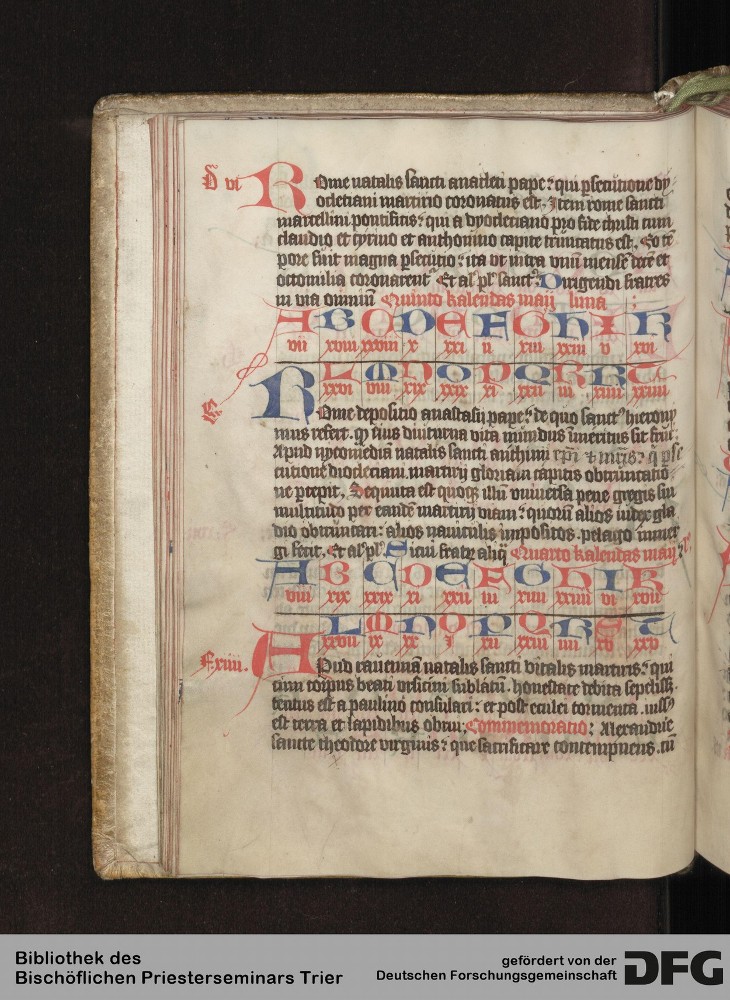 D vi Rome natalis sancti anacleti pape : qui psecutione dy
ocletiani martirio coronatus est . Item rome sancti
marcellini pontificis : qui a dyocletiano pro fide christi cum
claudio et cyrino et anthonino capite truncatus est . Eo tē
pore fuit magna psecutio : ita ut intra unū mensē decē et
octomilia coronarent᷑ Et al' pl' sanct' . Dirigendi fratres
in via omniū Quinto kalendas maij luna :
A B C D E F G H I K
vii xviii xxviii x xxi ii xiii xxiii v xvi
L M N O P Q R R T
xxvi viii xix xxix xi xxii iii xiiii xxiiii
E Rome depositio anastasij pape : de quo sanct' hierony
mus refert . q sius diuturna vita mundus īmeritus sit frui .
Apud nycomediā natalis sancti anthimi epi et mr̄is : q pse
cutione diocleciani . martirij gloriam capitis obtruncatio
ne pcepit . Sequuta est quoq; illū universa pene gregis sui
multitudo per eandē martirij viam : quorū alios iudex gla
dio obtruncari : alios naviculis impositos . pelago inmer
gi fecit . Et al' pl' . Sicui fratrz aliq Quarto kalendas maij
A B C D E F G H I K
viii xix xxix xi xxii iii xiiii xxiiii vi xvii
L M N O P Q R S T
xxvii ix xx i xii xxiii iiii xv xxv
F xiiii . Apud ravennā natalis sancti vitalis martiris : qui
cum corpus beati ursicini sublatū . honestate debita sepeliss;
tentus est a paulino consulari : et post eculei tormenta . iuss'
est terra et lapidibus obrui : Commemoratio : Alexandrie
sancte theodore virginis : que sacrificare contempnens . cū
Bibliothek des
Bischöflichen Priesterseminars Trier
gefördert von der
Deutschen Forschungsgemeinschaft
DFG